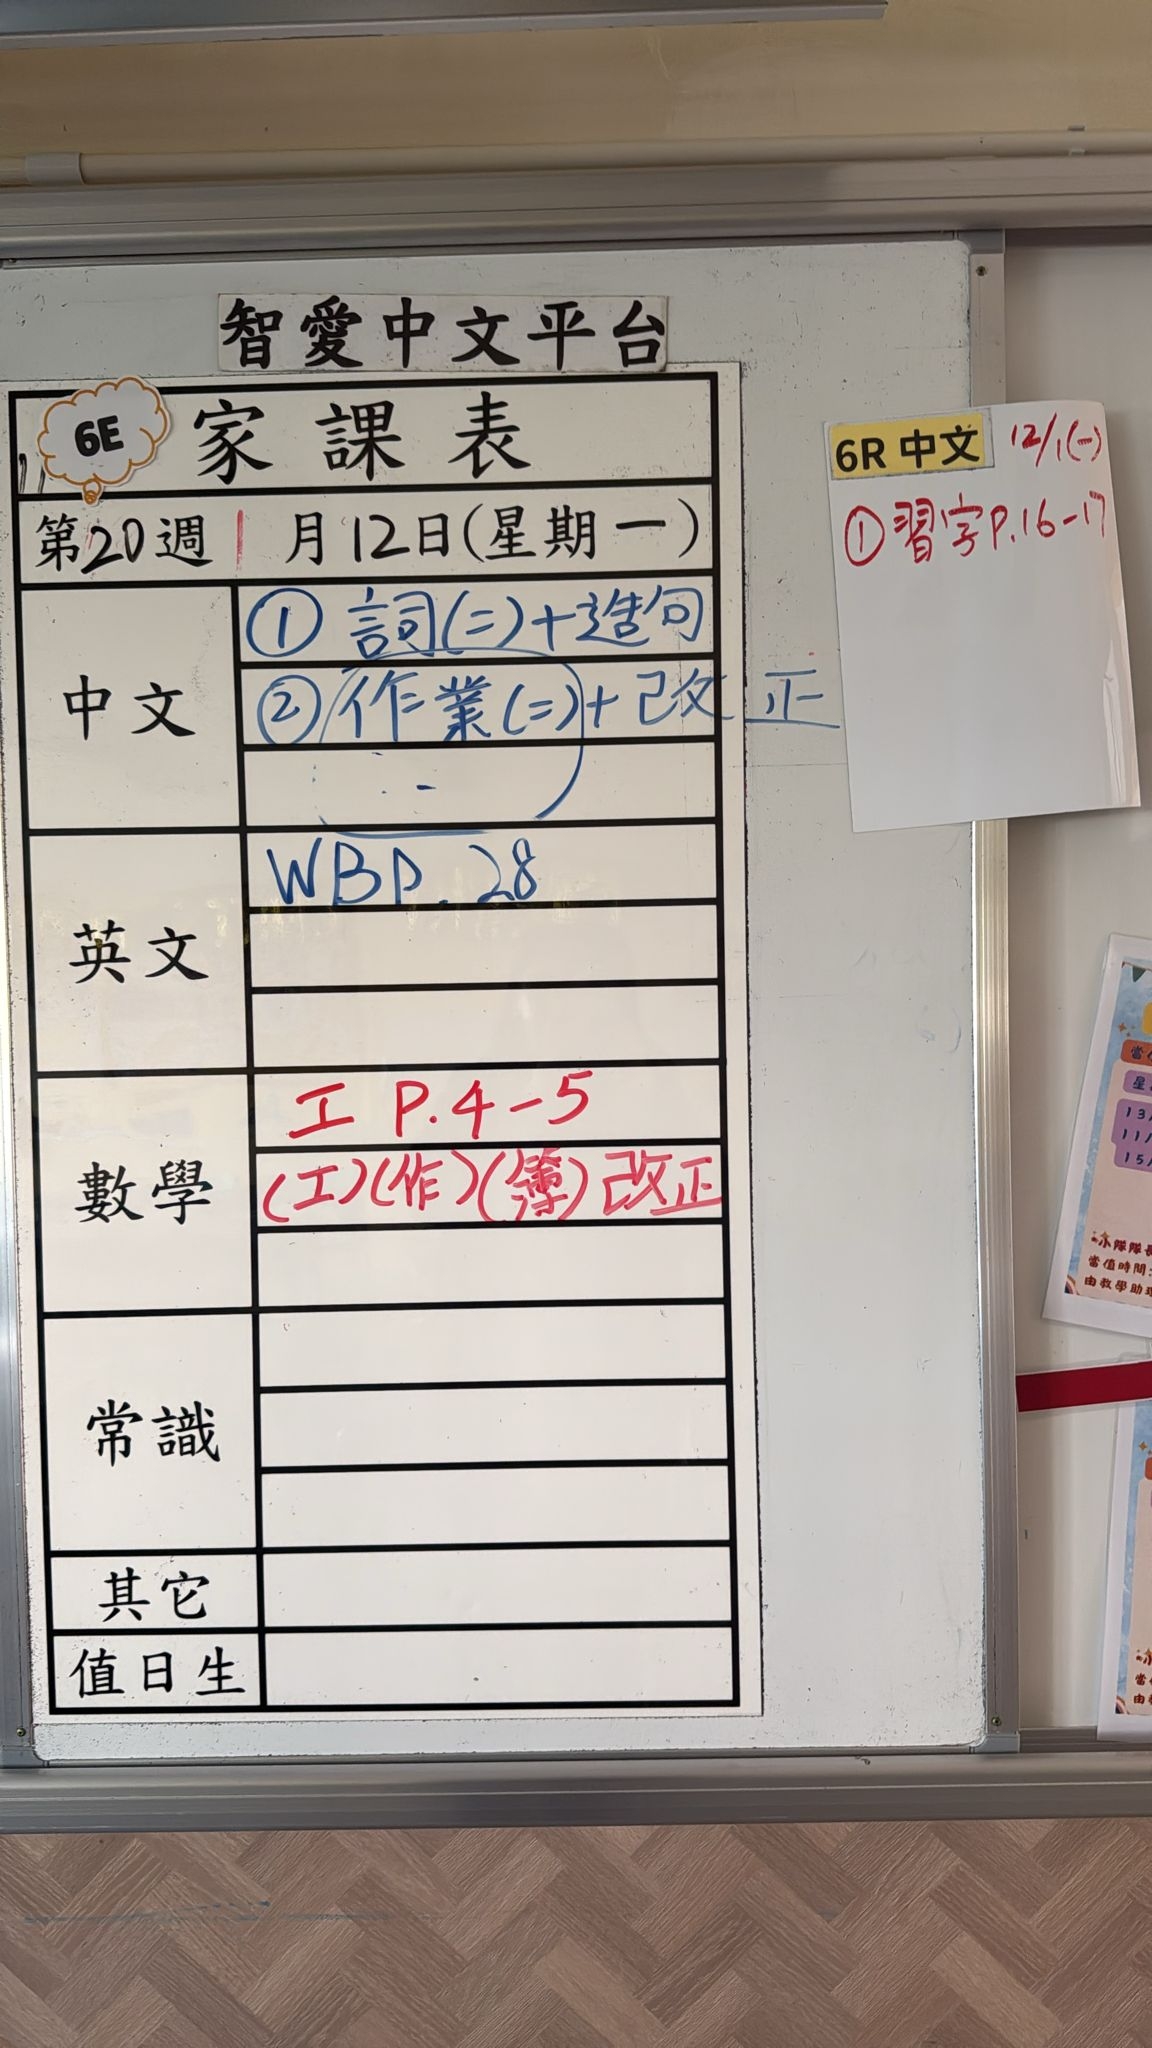 智愛中文平台
6E 家課表
第20週 1月12日(星期一)
中文
① 詞(二)+造句
② 作業(二)+改正
英文
WB P.28
數學
工 P.4-5
(工)(作)(簿)改正
常識
其它
值日生
6R 中文 12/1(一)
① 習字P.16-17
13/
11/
15/
隊隊長
當值時間:
由教學助理